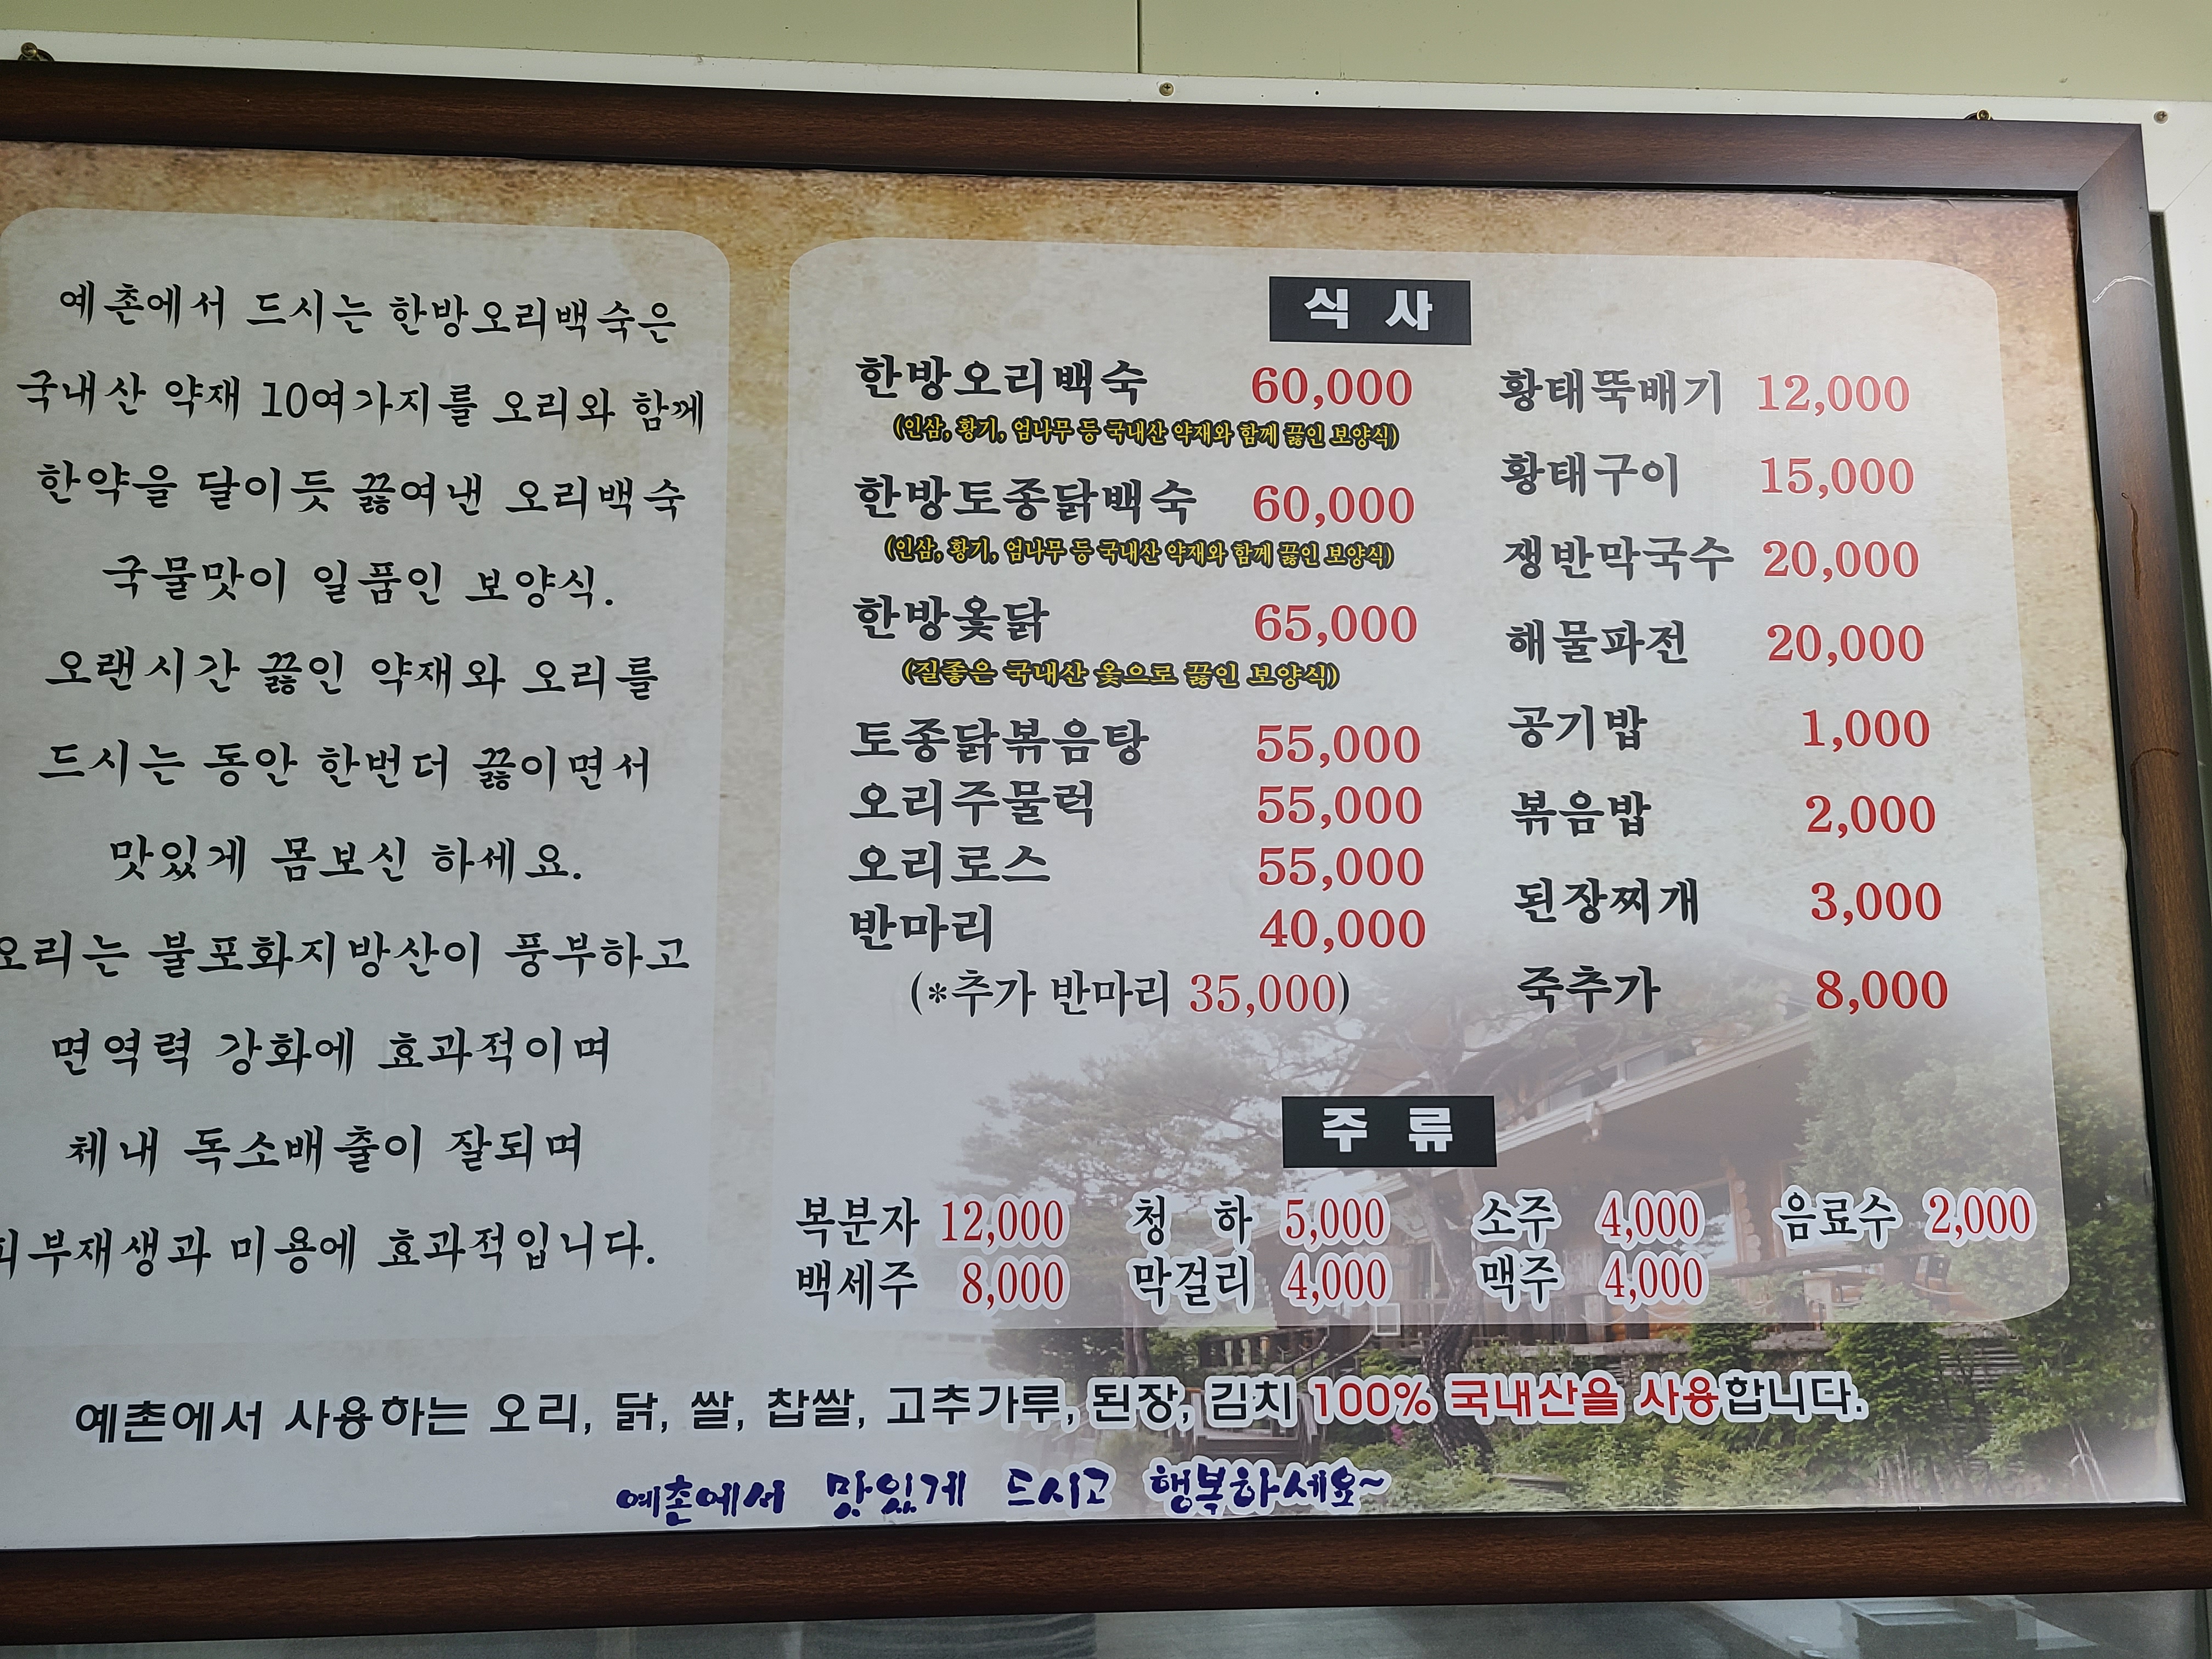 예촌에서 드시는 한방오리백숙은
국내산 약재 10여가지를 오리와 함께
한약을 달이듯 끓여낸 오리백숙
국물맛이 일품인 보양식.
오랜시간 끓인 약재와 오리를
드시는 동안 한번더 끓이면서
맛있게 몸보신 하세요.
오리는 불포화지방산이 풍부하고
면역력 강화에 효과적이며
체내 독소배출이 잘되며
피부재생과 미용에 효과적입니다.
식 사
한방오리백숙 60,000
(인삼, 황기, 엄나무 등 국내산 약재와 함께 끓인 보양식)
한방토종닭백숙 60,000
(인삼, 황기, 엄나무 등 국내산 약재와 함께 끓인 보양식)
한방옻닭 65,000
(질좋은 국내산 옻으로 끓인 보양식)
토종닭볶음탕 55,000
오리주물럭 55,000
오리로스 55,000
반마리 40,000
(*추가 반마리 35,000)
황태뚝배기 12,000
황태구이 15,000
쟁반막국수 20,000
해물파전 20,000
공기밥 1,000
볶음밥 2,000
된장찌개 3,000
죽추가 8,000
주 류
복분자 12,000 청 하 5,000 소주 4,000 음료수 2,000
백세주 8,000 막걸리 4,000 맥주 4,000
예촌에서 사용하는 오리, 닭, 쌀, 찹쌀, 고추가루, 된장, 김치 100% 국내산을 사용합니다.
예촌에서 맛있게 드시고 행복하세요~